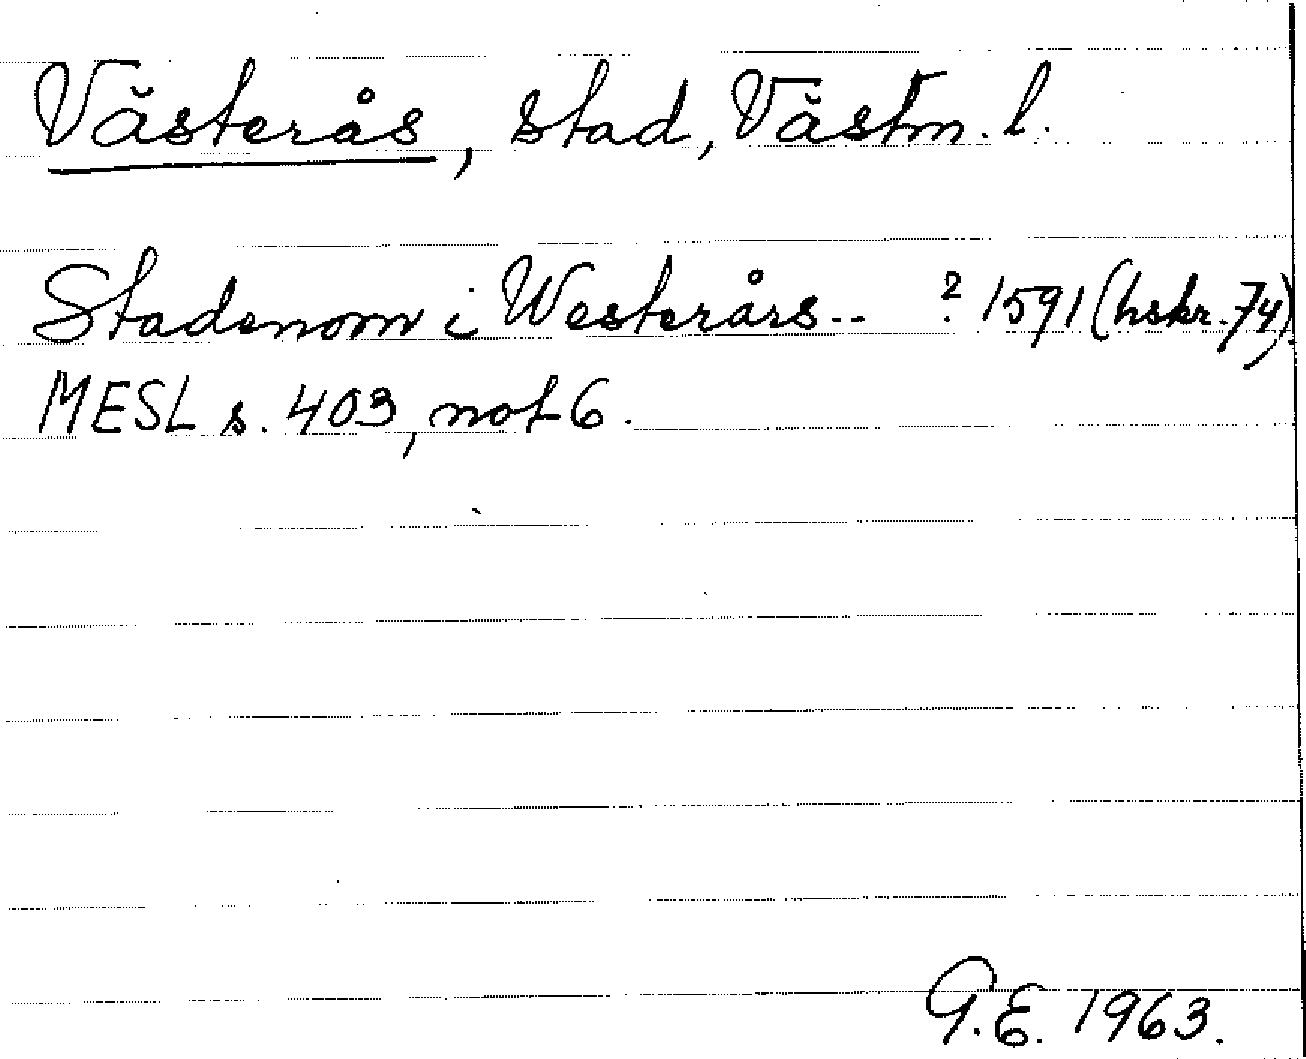 Västerås, stad, Västm. l.
Stadenom i Westerårs.. ? 1591 (hskr. 74).
MESL s. 403, not 6.
G.E. 1963.